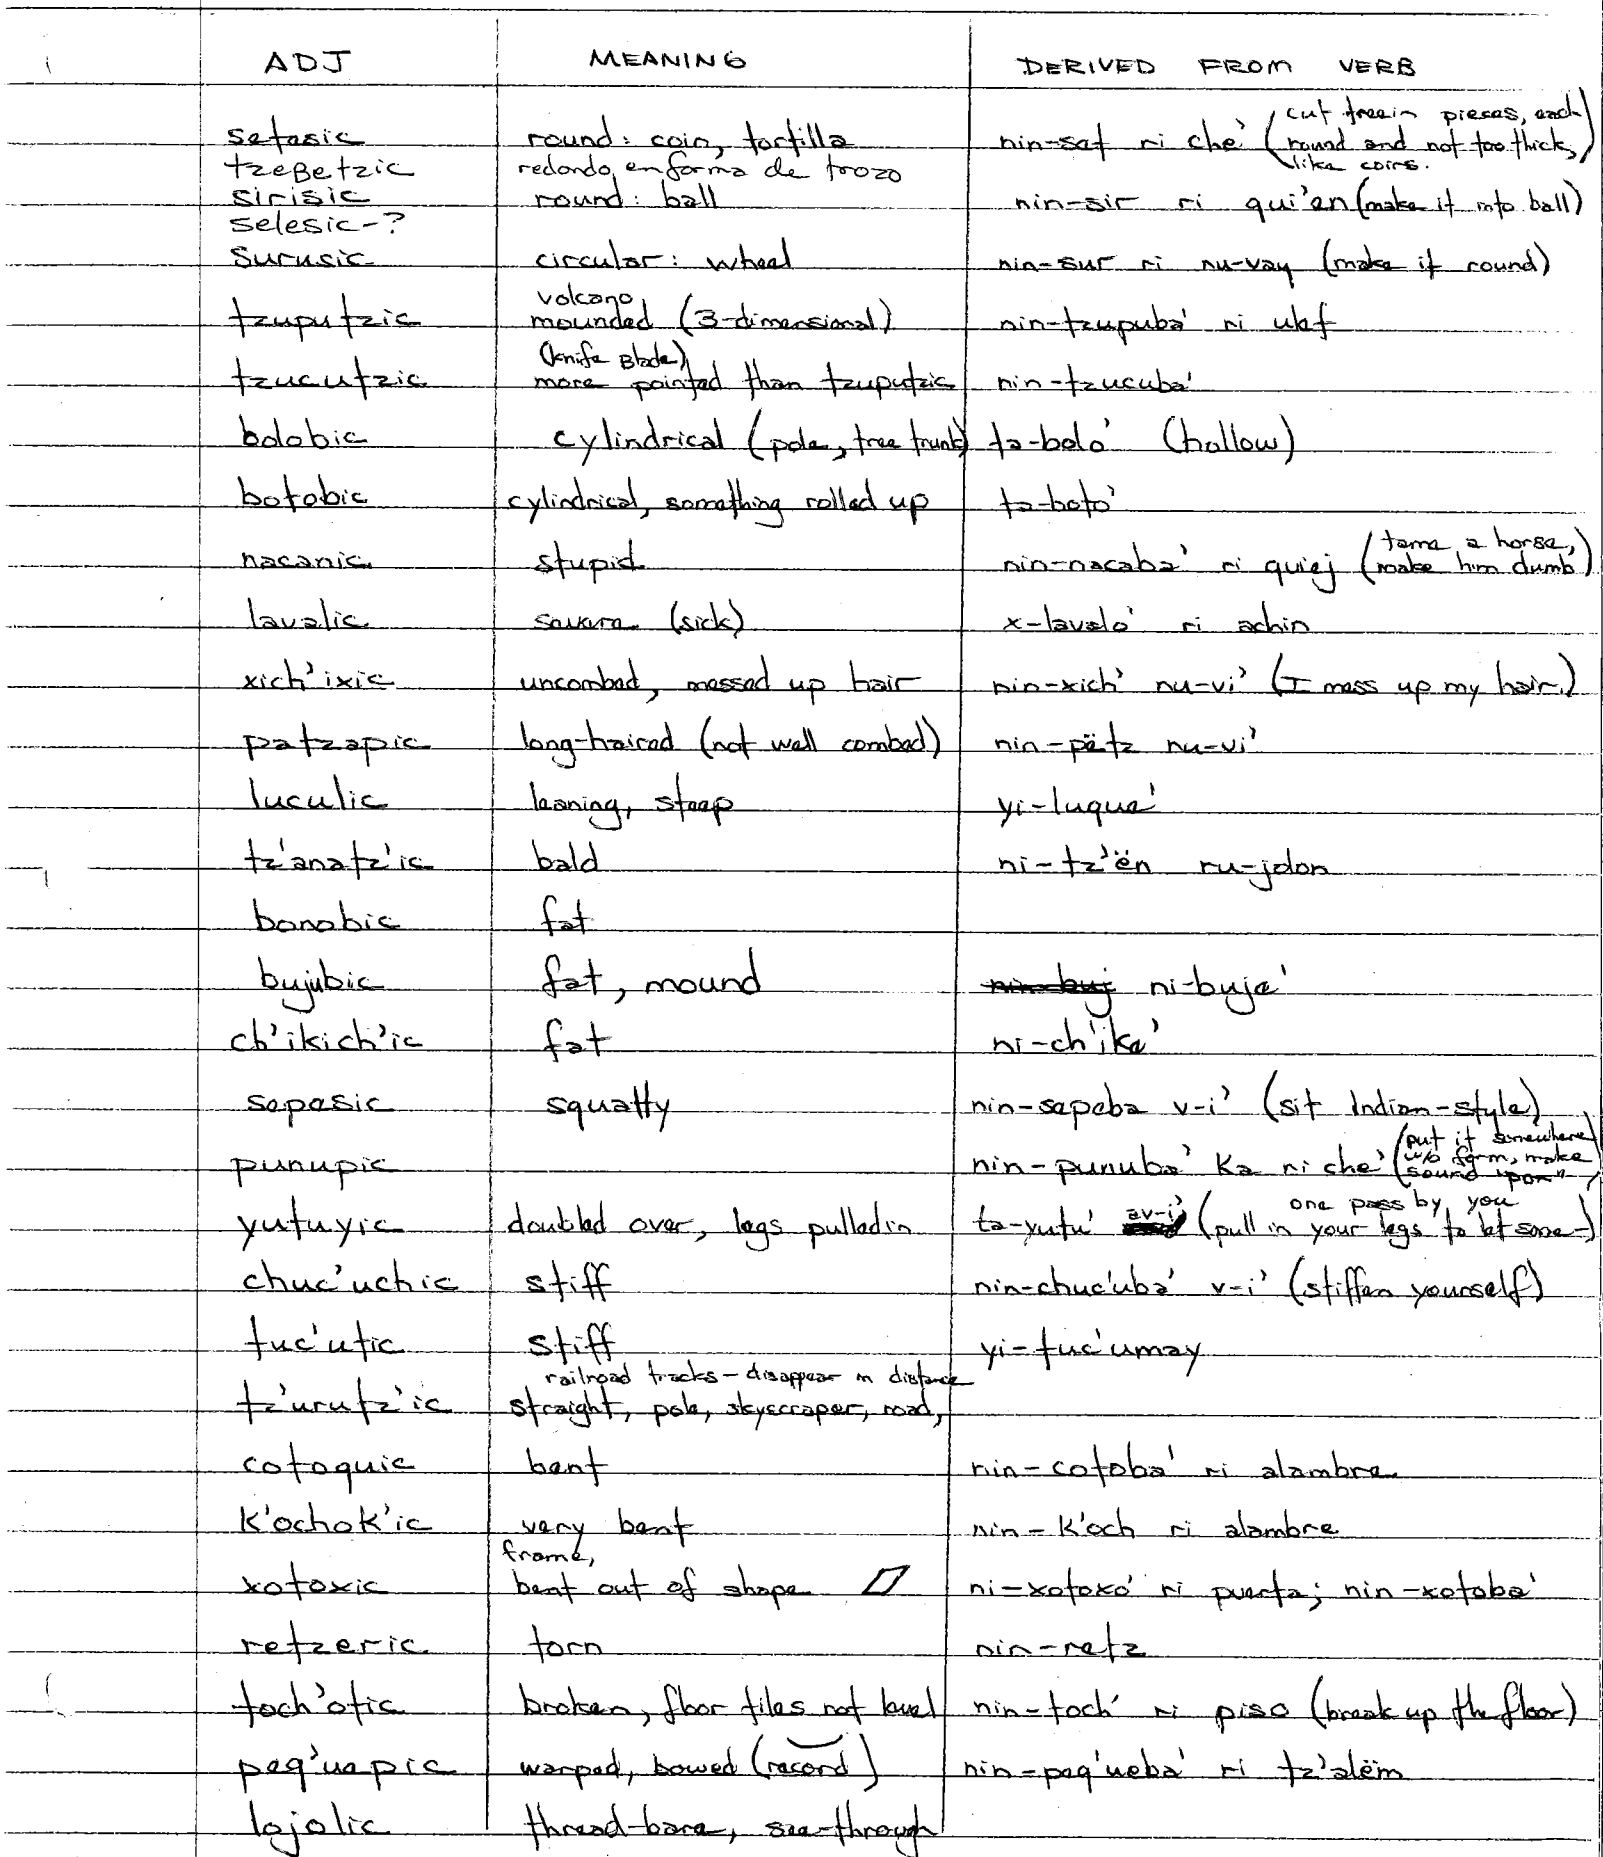 ADJ MEANING DERIVED FROM VERB
setesic round: coin, tortilla nin-set ri che' (cut tree in pieces, each round and not too thick, like coins.)
tzeBetzic redondo, en forma de trozo
sirisic round: ball nin-sir ri qui'en (make it into ball)
selesic-?
surusic circular: wheel nin-sur ri nu-vay (make it round)
tzuputzic volcano, mounded (3-dimensional) nin-tzupuba' ri ulef
tzucutzic (knife Blade) more pointed than tzuputzic nin-tzucuba'
bolobic cylindrical (pole, tree trunk) ta-bolo' (hollow)
botobic cylindrical, something rolled up ta-boto'
nacanic stupid nin-nacaba' ri quiej (tame a horse, make him dumb)
lavalic severe (sick) x-lavalo' ri achin
xich'ixic uncombed, messed up hair nin-xich' nu-vi' (I mess up my hair.)
patzapic long-haired (not well combed) nin-pëtz nu-vi'
luculic leaning, steep yi-luque'
tz'anatz'ic bald ni-tz'ën ru-jolon
bonobic fat
bujubic fat, mound nin-buj ni-buje'
ch'ikich'ic fat ni-ch'ike'
sepesic squatty nin-sepeba v-i' (sit Indian-style)
punupic nin-punuba' ka ri che' (put it somewhere w/o form, make sound "pon")
yutuyic doubled over, legs pulled in ta-yutu' av-i' (pull in your legs to let some-one pass by you)
chuc'uchic stiff nin-chuc'uba' v-i' (stiffen yourself)
tuc'utic stiff yi-tuc'umay
tz'urutz'ic straight, pole, skyscraper, road, railroad tracks - disappear in distance
cotoquic bent nin-cotoba' ri alambre
k'ochok'ic very bent nin-k'och ri alambre
xotoxic frame, bent out of shape ni-xotoxo' ri puerta; nin-xotoba'
retzeric torn nin-retz
toch'otic broken, floor tiles not level nin-toch' ri piso (break up the floor)
peq'uepic warped, bowed (record) nin-peq'ueba' ri tz'alëm
lojolic thread-bare, see-through